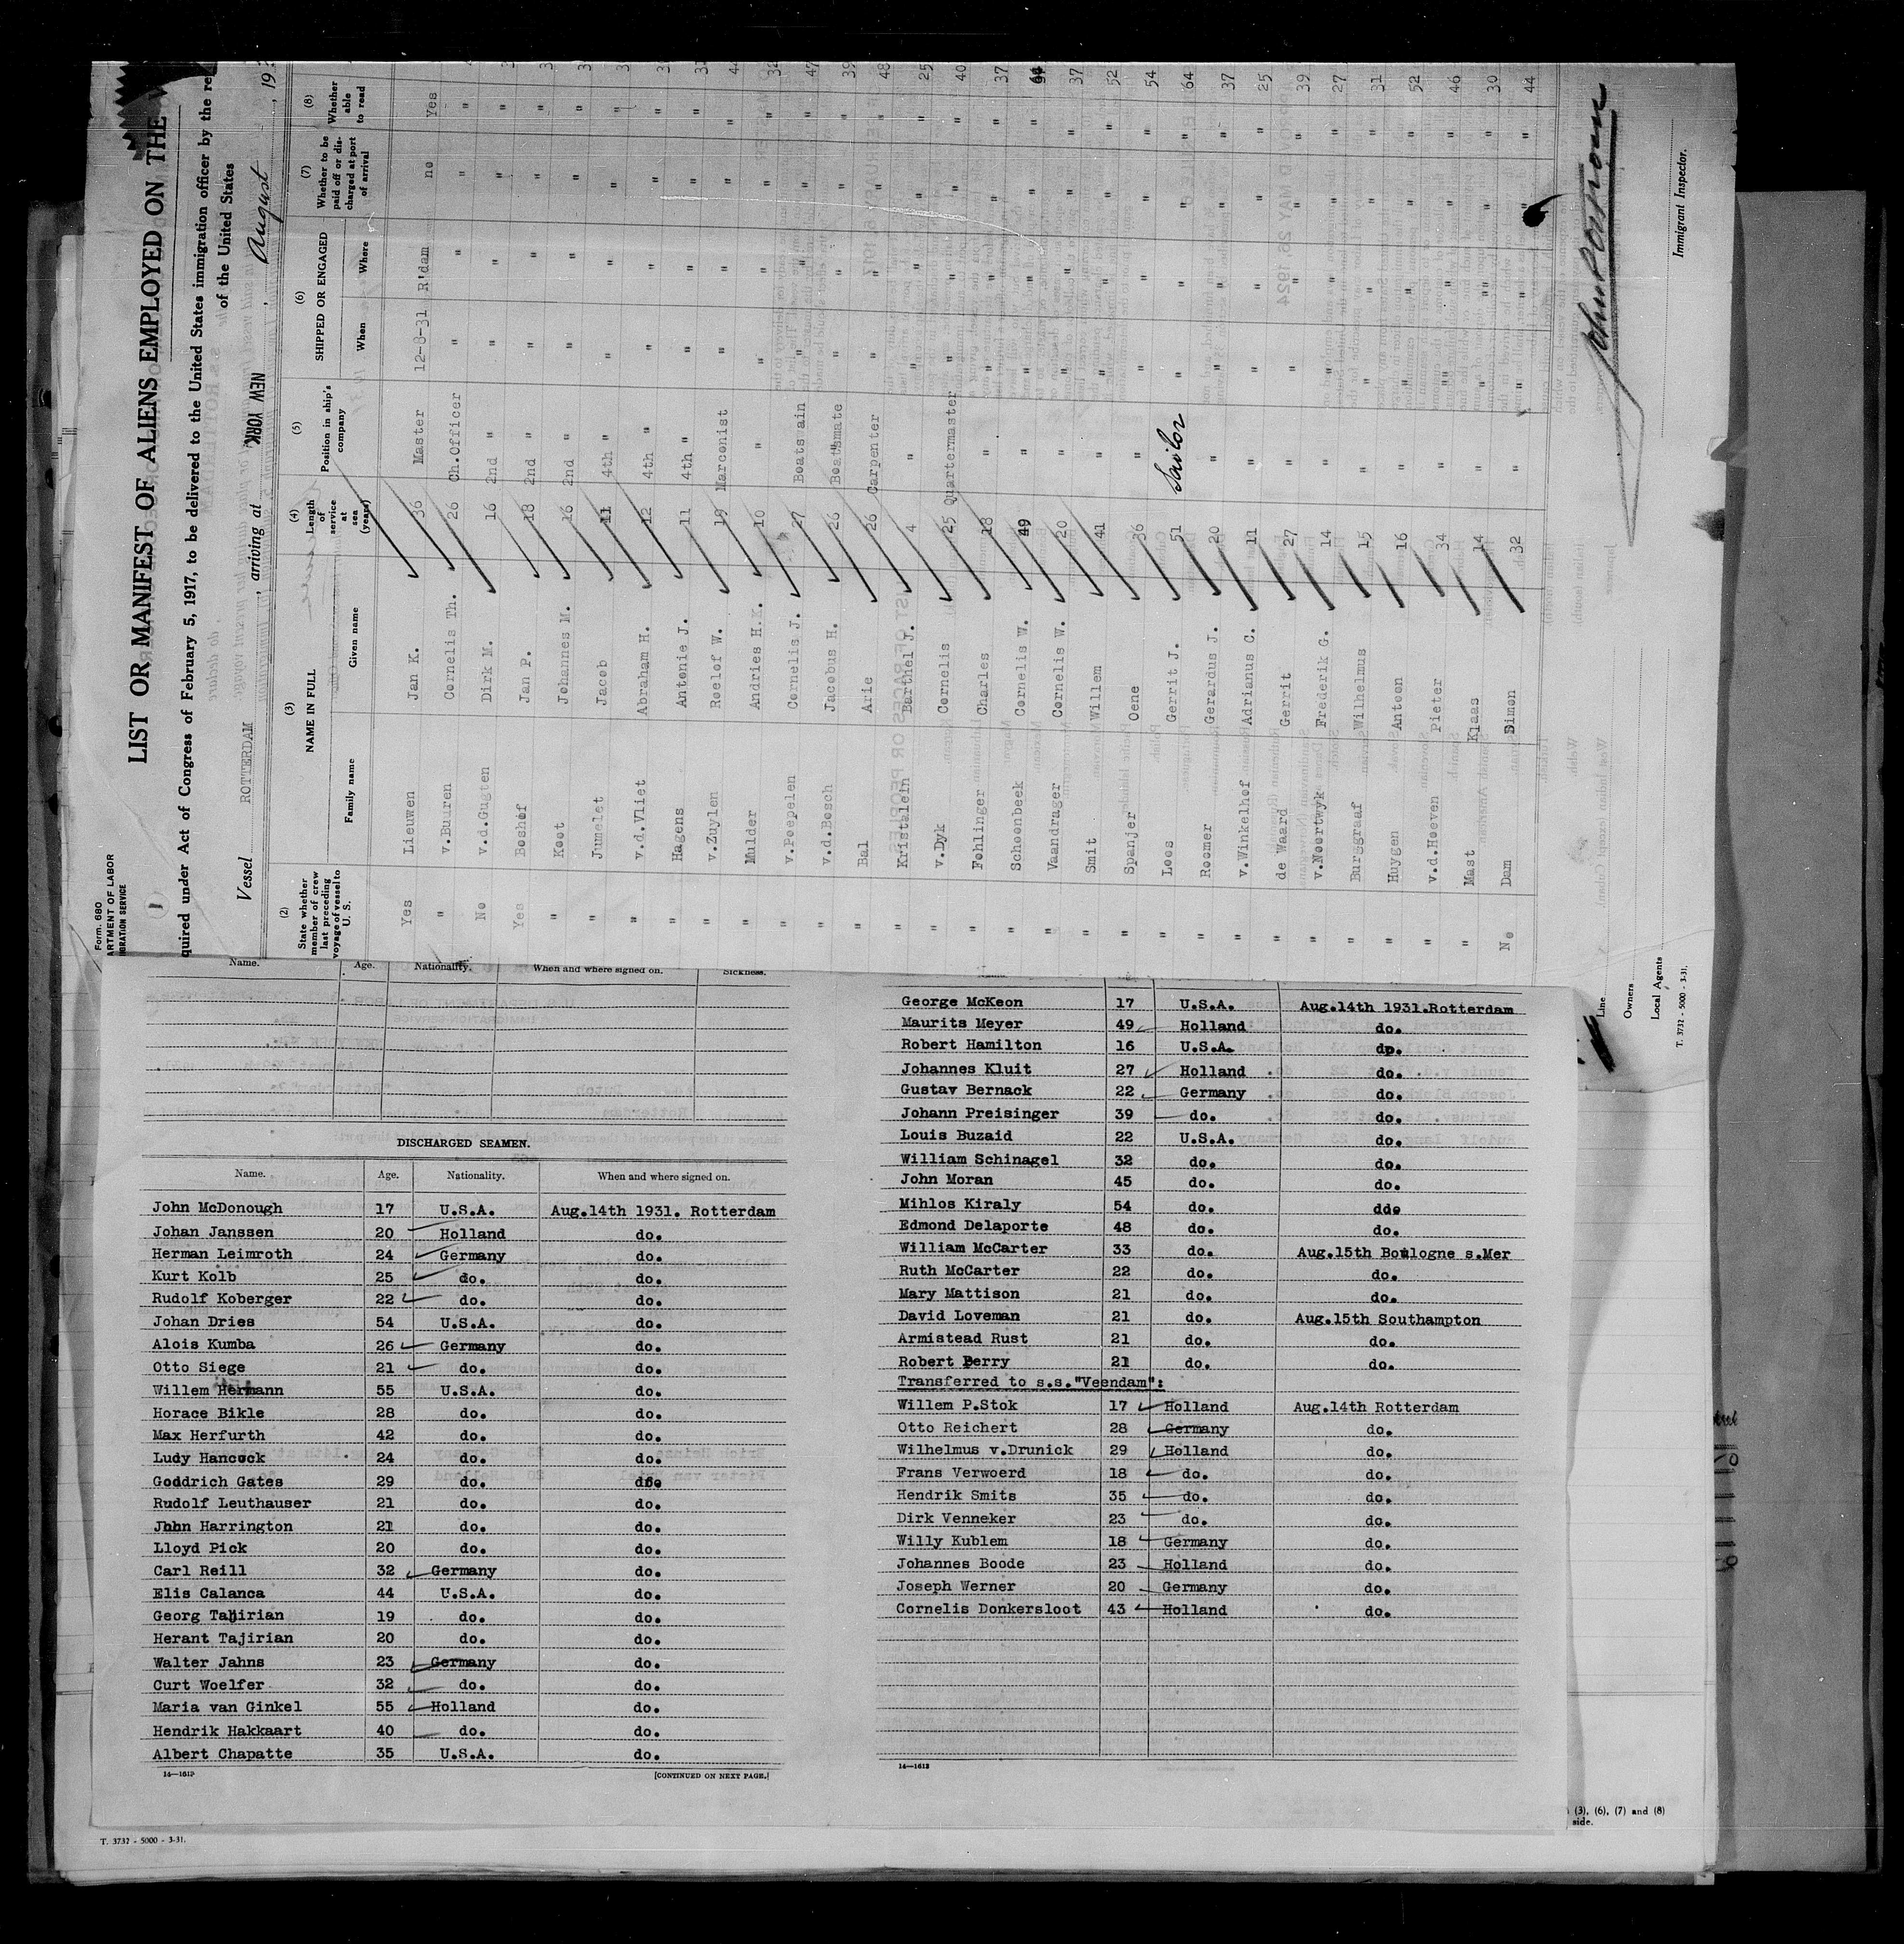 Form. 680
ARTMENT OF LABOR
IGRATION SERVICE
LIST OR MANIFEST OF ALIENS EMPLOYED ON THE
quired under Act of Congress of February 5, 1917, to be delivered to the United States immigration officer by the re
of the United States
Vessel ROTTERDAM, arriving at NEW YORK, August, 193
(2) State whether member of crew last preceding voyage of vessel to U. S.
(3) NAME IN FULL
Family name Given name
(4) Length of service at sea (years)
(5) Position in ship's company
(6) SHIPPED OR ENGAGED
When Where
(7) Whether to be paid off or discharged at port of arrival
(8) Whether able to read
Yes Lieuwen Jan K. 36 Master 12-8-31 R'dam no Yes
" v.Buuren Cornelis Th. 26 Ch.Officer " " " "
No v.d.Gugten Dirk M. 16 2nd " " " " "
Yes Boshof Jan P. 18 2nd " " " " "
" Koot Johannes M. 16 2nd " " " " "
" Jumelet Jacob 11 4th " " " " "
" v.d.Vliet Abraham H. 12 4th " " " " "
" Hagens Antonie J. 11 4th " " " " "
" v.Zuylen Roelof W. 19 Marconist " " " " 44
" Mulder Andries H.K. 10 " " " " " 32
" v.Poepelen Cornelis J. 27 Boatswain " " " " 47
" v.d.Bosch Jacobus H. 26 Boatsmate " " " " 39
" Bal Arie 26 Carpenter " " " " 48
" Kristalein Barthel J. 4 " " " " " 25
" v.Dyk Cornelis 25 Quartermaster " " " " 40
" Fohlinger Charles 18 " " " " " 37
" Schoonbeek Cornelis W. 49 " " " " "
" Vaandrager Cornelis W. 20 " " " " " 37
" Smit Willem 41 " " " " " 52
" Spanjer Oene 36 " " " " " 54
" Loos Gerrit J. 51 Sailor " " " " 64
" Roomer Gerardus J. 20 " " " " " 37
" v.Winkelhof Adrianus C. 11 " " " " " 25
" de Waard Gerrit 27 " " " " " 39
" v.Noortwyk Frederik G. 14 " " " " " 27
" Burggraaf Wilhelmus 15 " " " " " 31
" Huygen Antoon 16 " " " " " 52
" v.d.Hoeven Pieter 34 " " " " " 46
" Mast Klaas 14 " " " " " 30
No Dam Simon 32 " " " " " 44
Line
Owners
Local Agents
Immigrant Inspector.
T. 3732 - 5000 - 3-31.
Name. Age. Nationality. When and where signed on. Sickness.
DISCHARGED SEAMEN.
Name. Age. Nationality. When and where signed on.
John McDonough 17 U.S.A. Aug.14th 1931. Rotterdam
Johan Janssen 20 Holland do.
Herman Leimroth 24 Germany do.
Kurt Kolb 25 do. do.
Rudolf Koberger 22 do. do.
Johan Dries 54 U.S.A. do.
Alois Kumba 26 Germany do.
Otto Siege 21 do. do.
Willem Hermann 55 U.S.A. do.
Horace Bikle 28 do. do.
Max Herfurth 42 do. do.
Ludy Hancock 24 do. do.
Goddrich Gates 29 do. do.
Rudolf Leuthauser 21 do. do.
John Harrington 21 do. do.
Lloyd Pick 20 do. do.
Carl Reill 32 Germany do.
Elis Calanca 44 U.S.A. do.
Georg Tajirian 19 do. do.
Herant Tajirian 20 do. do.
Walter Jahns 23 Germany do.
Curt Woelfer 32 do. do.
Maria van Ginkel 55 Holland do.
Hendrik Hakkaart 40 do. do.
Albert Chapatte 35 U.S.A. do.
14—1613 [CONTINUED ON NEXT PAGE.]
George McKeon 17 U.S.A. Aug.14th 1931.Rotterdam
Maurits Meyer 49 Holland do.
Robert Hamilton 16 U.S.A. do.
Johannes Kluit 27 Holland do.
Gustav Bernack 22 Germany do.
Johann Preisinger 39 do. do.
Louis Buzaid 22 U.S.A. do.
William Schinagel 32 do. do.
John Moran 45 do. do.
Mihlos Kiraly 54 do. ddo
Edmond Delaporte 48 do. do.
William McCarter 33 do. Aug.15th Boulogne s.Mer
Ruth McCarter 22 do. do.
Mary Mattison 21 do. do.
David Loveman 21 do. Aug.15th Southampton
Armistead Rust 21 do. do.
Robert Perry 21 do. do.
Transferred to s.s."Veendam":
Willem P.Stok 17 Holland Aug.14th Rotterdam
Otto Reichert 28 Germany do.
Wilhelmus v.Drunick 29 Holland do.
Frans Verwoerd 18 do. do.
Hendrik Smits 35 do. do.
Dirk Venneker 23 do. do.
Willy Kublem 18 Germany do.
Johannes Boode 23 Holland do.
Joseph Werner 20 Germany do.
Cornelis Donkersloot 43 Holland do.
14—1613
(3), (6), (7) and (8)
side.
T. 3732 - 5000 - 3-31.